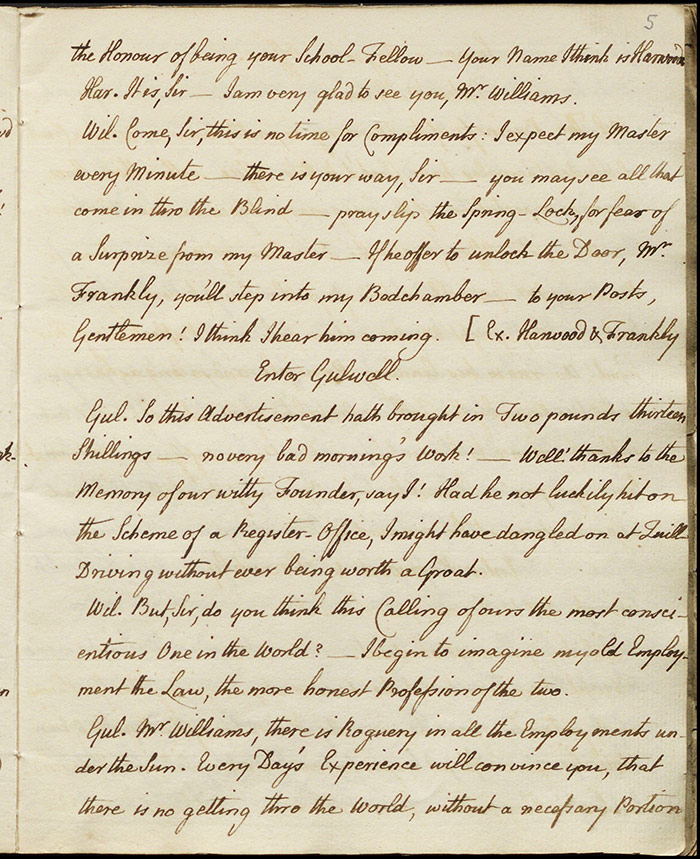 5
the Honour of being your School-Fellow — Your Name I think is Harwood
Har. It is, Sir — I am very glad to see you, Mr. Williams.
Wil. Come, Sir, this is no time for Compliments: I expect my Master
every Minute — there is your way, Sir — you may see all that
come in thro the Blind — pray slip the Spring-Lock, for fear of
a Surprize from my Master — If he offer to unlock the Door, Mr.
Frankly, you'll step into my Bedchamber — to your Posts,
Gentlemen! I think I hear him coming. [Ex. Harwood & Frankly
Enter Gulwell.
Gul. So this Advertisement hath brought in Two pounds thirteen
Shillings — no very bad morning's Work! — Well! thanks to the
Memory of our witty Founder, say I! Had he not luckily hit on
the Scheme of a Register-Office, I might have dangled on at Quill
Driving without ever being worth a Groat.
Wil. But, Sir, do you think this Calling of ours the most consci-
entious One in the World? — I begin to imagine my old Employ-
ment the Law, the more honest Profession of the two.
Gul. Mr. Williams, there is Roguery in all the Employments un-
der the Sun. Every Day's Experience will convince you, that
there is no getting thro the World, without a necessary Portion